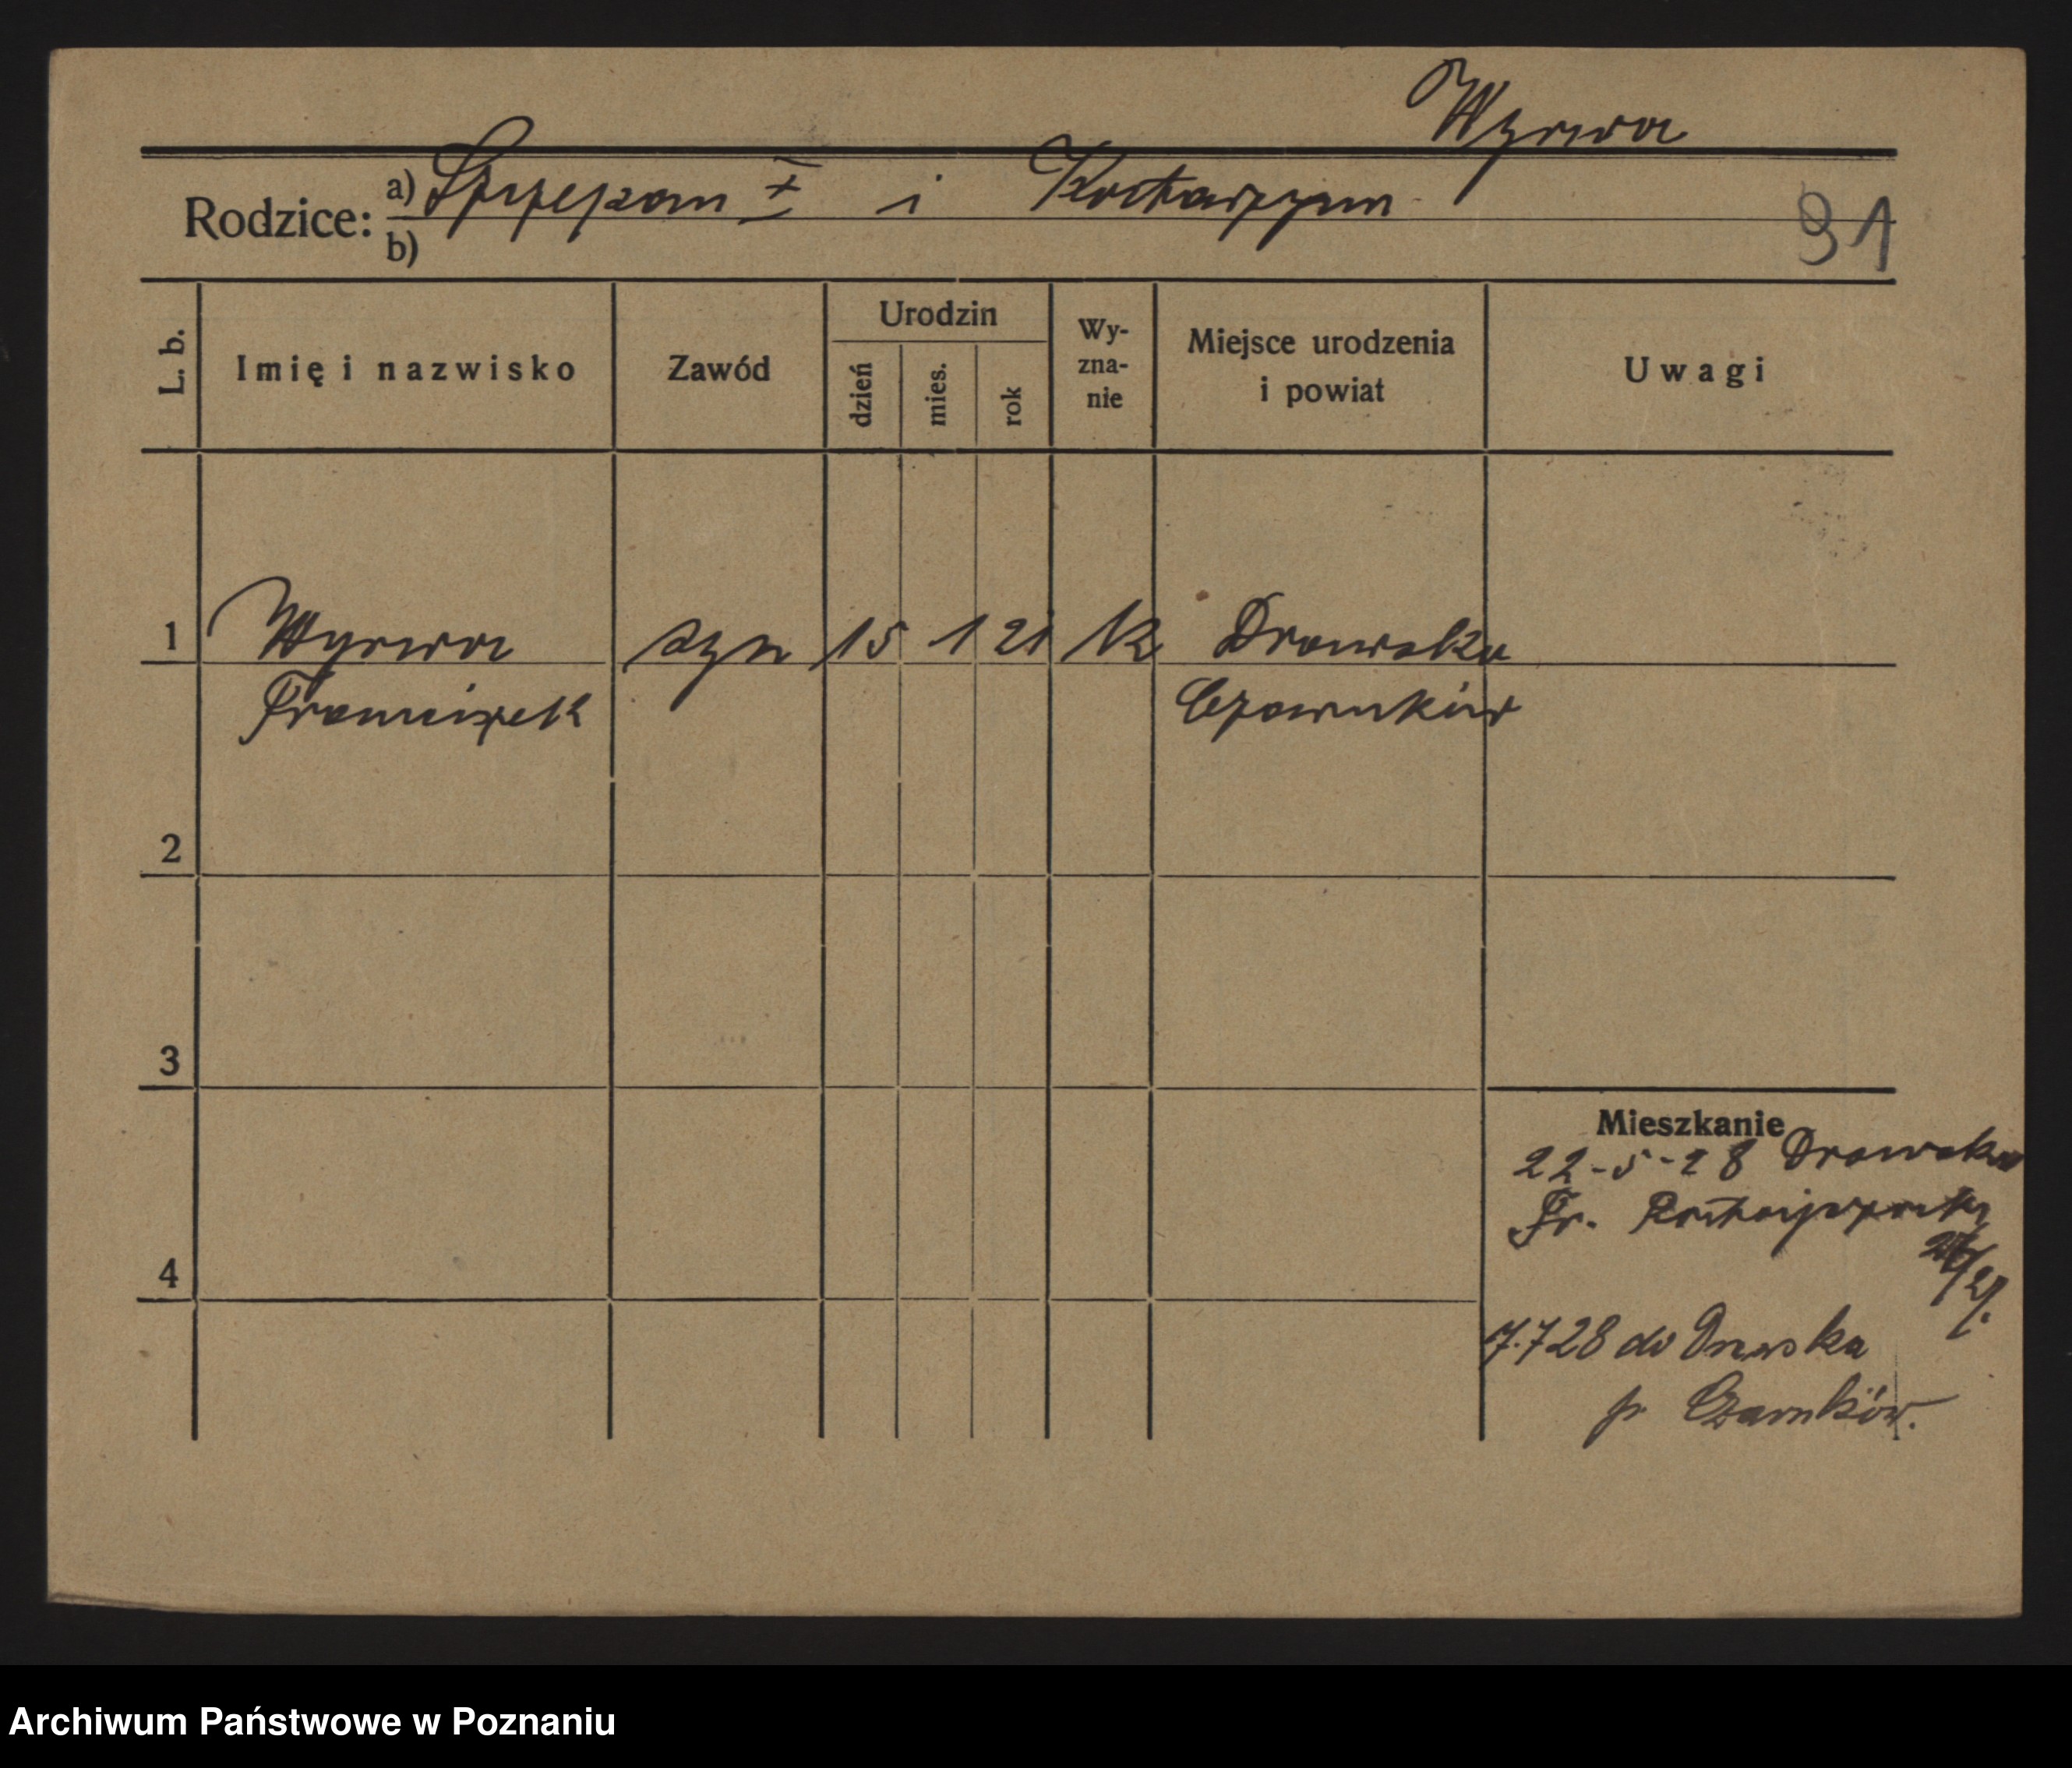 Wyrwa
Rodzice: a) Szczepan + i Katarzyna
b)
91
L. b. Imię i nazwisko Zawód Urodzin dzień mies. rok Wy-zna-nie Miejsce urodzenia i powiat Uwagi
1 Wyrwa syn 15 1 21 k Drawsko
Franciszek Czarnków
2
3
Mieszkanie
22-5-28 Drawsko
Fr.
4
7.7 28 do Drawska
p Czarnków.
Archiwum Państwowe w Poznaniu